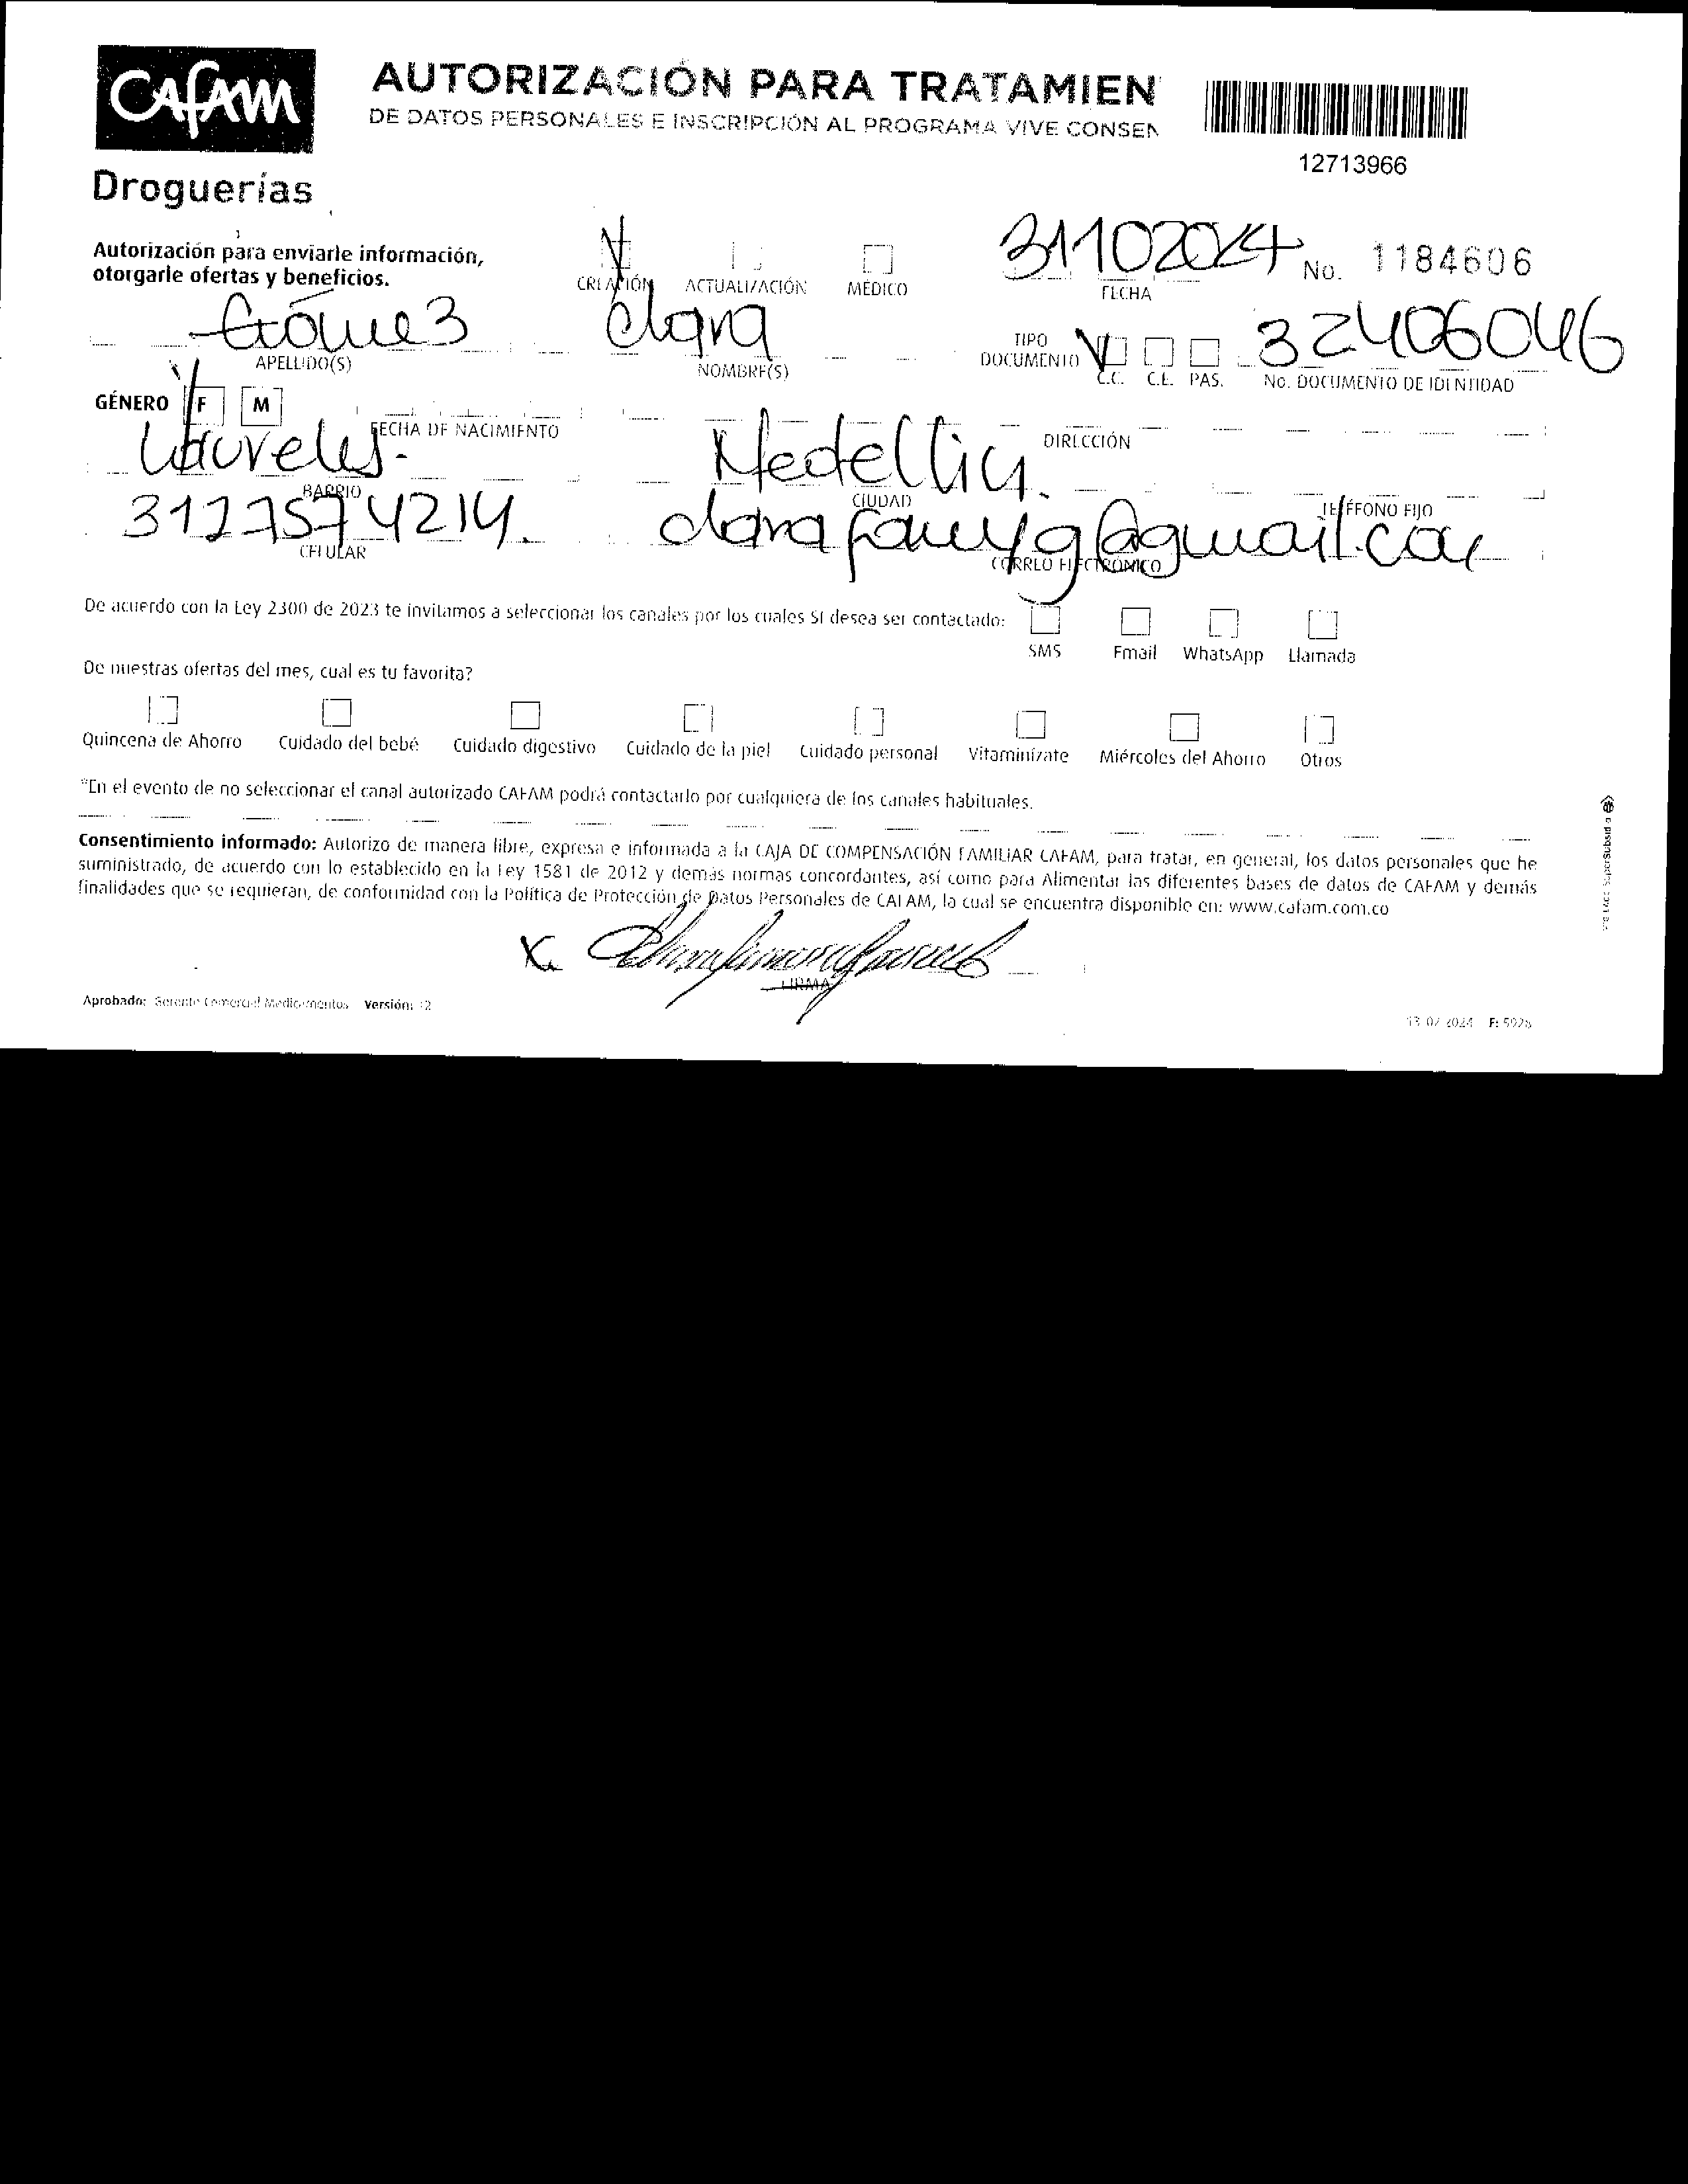 CAFAM
AUTORIZACIÓN PARA TRATAMIEN
DE DATOS PERSONALES E INSCRIPCIÓN AL PROGRAMA VIVE CONSEN
12713966
Droguerías
Autorización para enviarle información,
otorgarle ofertas y beneficios.
CREACIÓN ACTUALIZACIÓN MÉDICO
31102024 No. 1184606
FECHA
Gómez Clara
APELLIDO(S) NOMBRE(S)
TIPO DOCUMENTO C.C. C.E. PAS. 32406046
No. DOCUMENTO DE IDENTIDAD
GÉNERO F M
FECHA DE NACIMIENTO DIRECCIÓN
Laureles. Medellin.
BARRIO CIUDAD TELÉFONO FIJO
3127574214. clarafannyg@gmail.com
CELULAR CORREO ELECTRÓNICO
De acuerdo con la Ley 2300 de 2023 te invitamos a seleccionar los canales por los cuales SI desea ser contactado:
SMS Email WhatsApp Llamada
De nuestras ofertas del mes, cual es tu favorita?
Quincena de Ahorro Cuidado del bebé Cuidado digestivo Cuidado de la piel Cuidado personal Vitaminízate Miércoles del Ahorro Otros
*En el evento de no seleccionar el canal autorizado CAFAM podrá contactarlo por cualquiera de los canales habituales.
Consentimiento informado: Autorizo de manera libre, expresa e informada a la CAJA DE COMPENSACIÓN FAMILIAR CAFAM, para tratar, en general, los datos personales que he
suministrado, de acuerdo con lo establecido en la Ley 1581 de 2012 y demás normas concordantes, así como para Alimentar las diferentes bases de datos de CAFAM y demás
finalidades que se requieran, de conformidad con la Política de Protección de Datos Personales de CAFAM, la cual se encuentra disponible en: www.cafam.com.co
X.
FIRMA
Aprobado: Gerente Comercial Medicamentos Versión: 12
13 07 2024 F: 5928